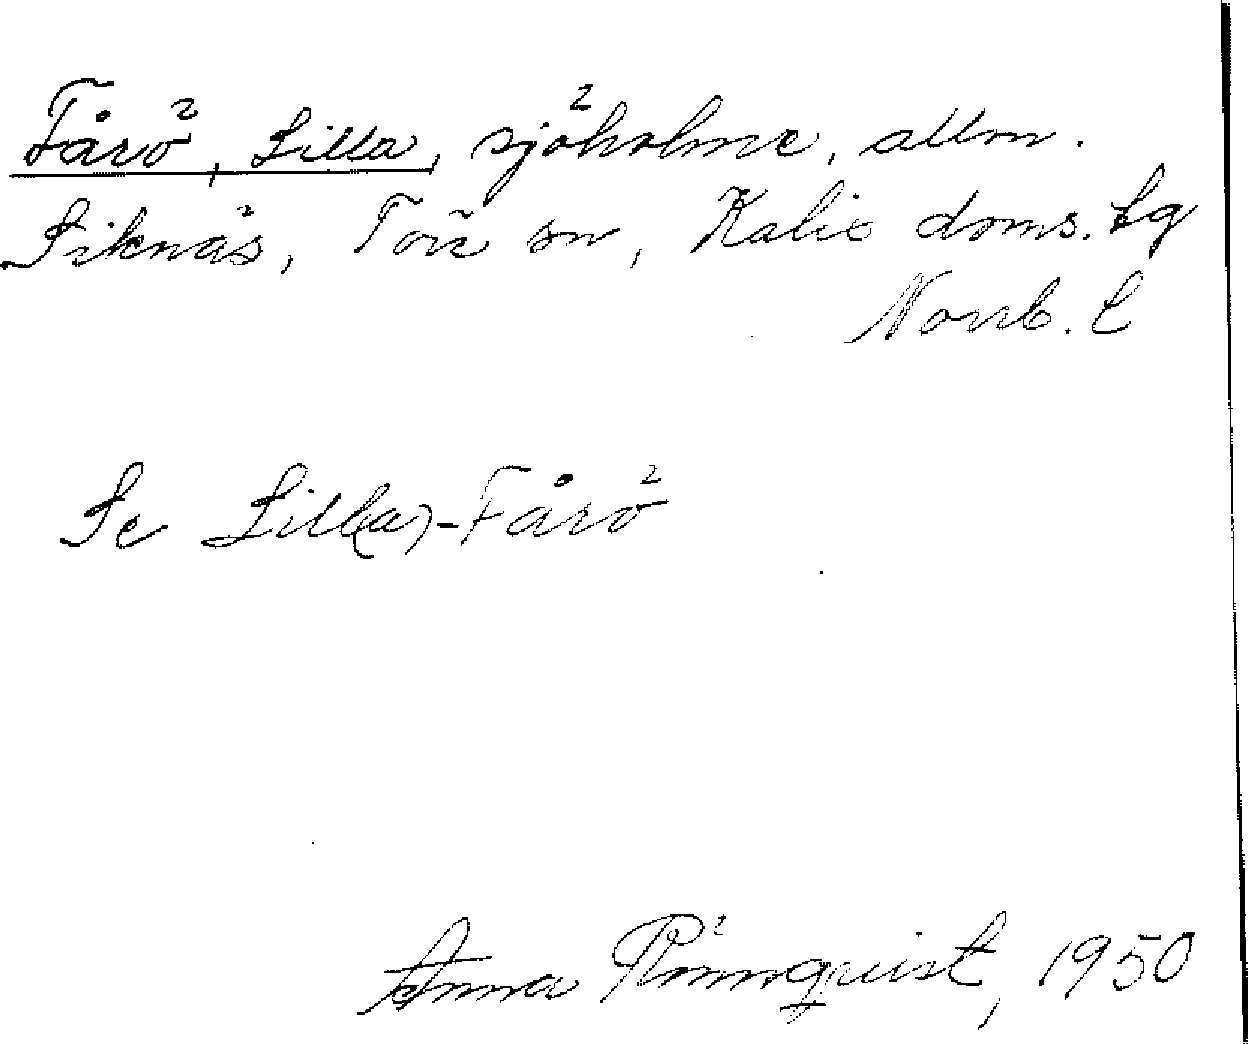 Fårö, Lilla, sjöholme, allm.
Siknäs, Töre sn, Kalix doms. lg
Norrb. l
Se Lill(a)-Fårö
Anna Rönnquist, 1950